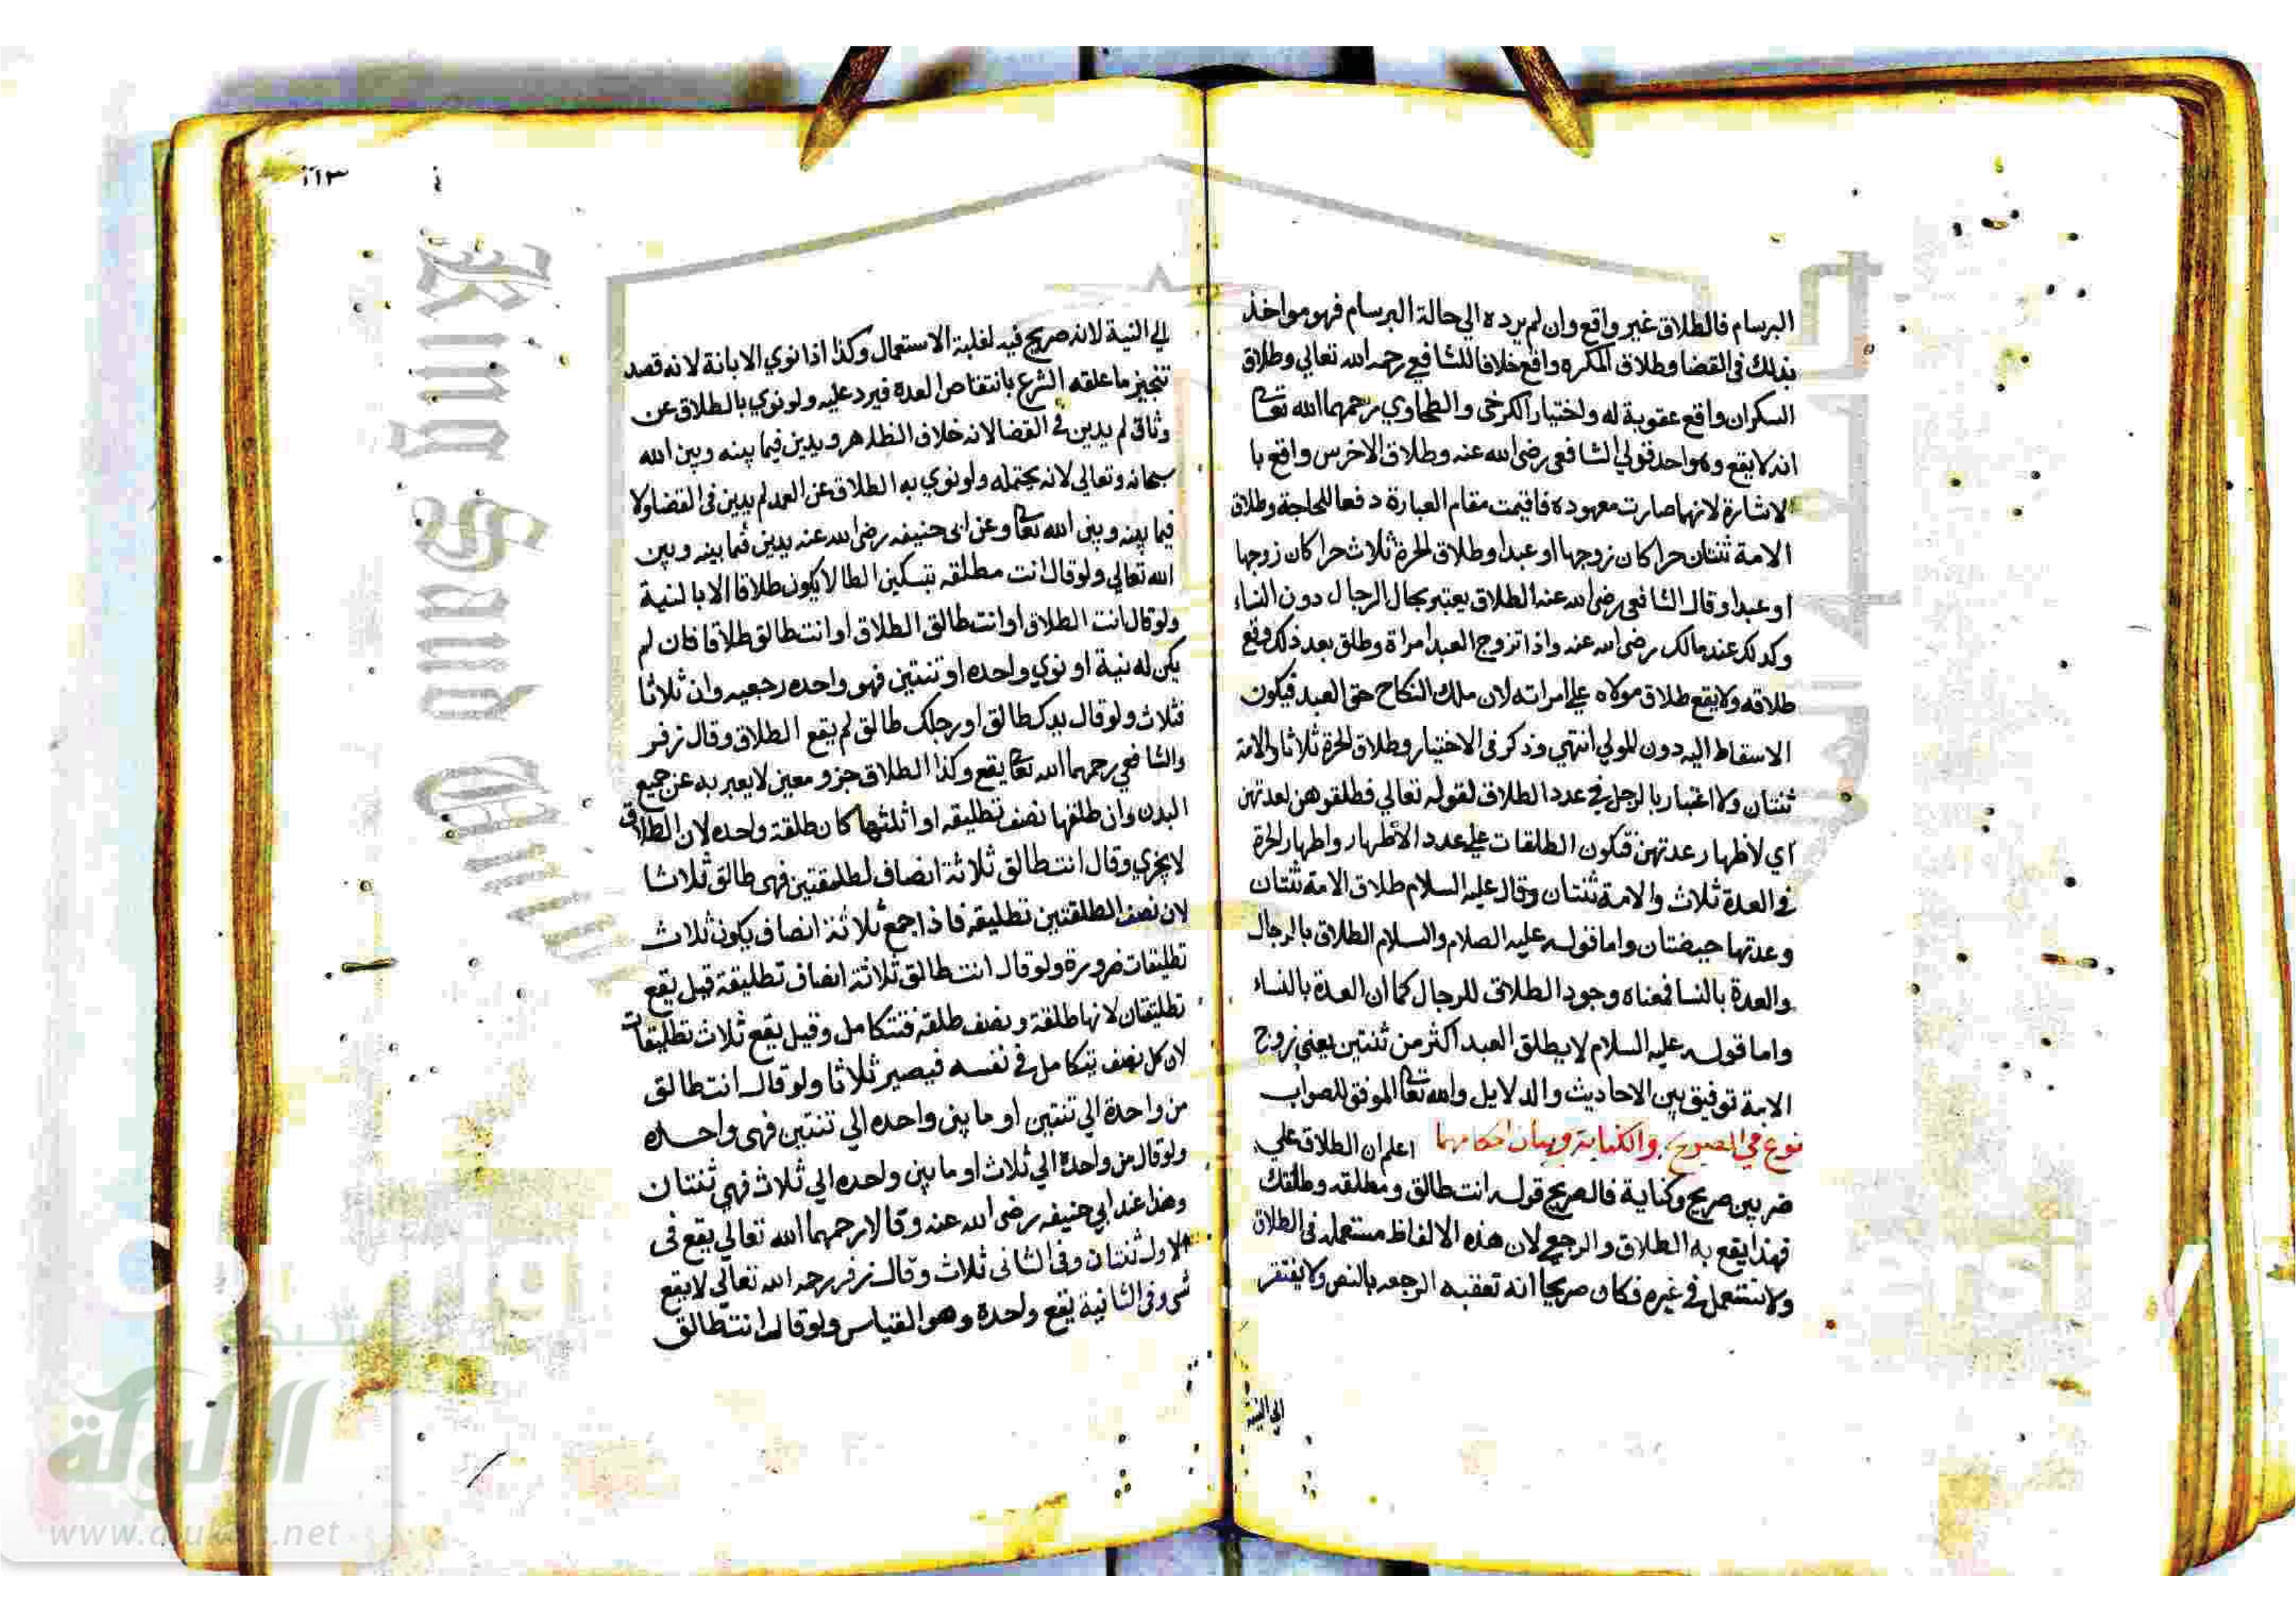 البرسام فالطلاق غير واقع وان لم يرده الي حالة البرسام فهو مواخذ
بذلك في القضا وطلاق المكره واقع خلافا للشافعي رحمه الله تعالي وطلاق
السكران واقع عقوبة له واختيار الكرخي والطحاوي رحمهما الله تعا
انه لا يقع وهو احد قولي الشافعي رضي الله عنه وطلاق الاخرس واقع با
لاشارة لانها صارت معهوده فاقيمت مقام العبارة دفعا للحاجة وطلاق
الامة ثنتان حرا كان زوجها او عبدا وطلاق الحرة ثلاث حرا كان زوجها
او عبدا وقال الشافعي رضي الله عنه الطلاق يعتبر بحال الرجال دون النساء
وكدلك عند مالك رضي الله عنه واذا تزوج العبد امراة وطلق بعد ذلك وقع
طلاقه ولا يقع طلاق مولاه علي امراته لان ملك النكاح حق العبد فيكون
الاسقاط اليه دون المولي انتهي وذكر في الاختيار وطلاق الحرة ثلاثا والامة
ثنتان ولا اعتبار بالرجل في عدد الطلاق لقوله تعالي فطلقوهن لعدتهن
اي لاظهار عدتهن فتكون الطلقات علي عدد الاطهار واطهار الحرة
في العدة ثلاث والامة ثنتان وقال عليه السلام طلاق الامة ثنتان
وعدتها حيضتان واما قوله عليه الصلام والسلام الطلاق بالرجال
والعدة بالنسا فمعناه وجود الطلاق للرجال كما ان العدة بالنساء
واما قوله عليه السلام لا يطلق العبد اكثر من ثنتين يعني زوج
الامة توفيق بين الاحاديث والدلايل والله تعا الموفق للصواب
نوع في الصريح والكناية وبيان احكامهما اعلم ان الطلاق علي
ضربين صريح وكناية فالصريح قوله انت طالق ومطلقه وطلقتك
فهذا يقع به الطلاق والرجعي لان هذه الالفاظ مستعمله في الطلاق
ولا تستعمل في غيره فكان صريحا انه تعقبه الرجعه بالنص ولا يفتقر
الي النية
١١٣
الي النية لانه صريح فيه لغلبة الاستعمال وكذا اذا نوي الابانة لانه قصد
تنجيز ما علقه الشرع بانتقاص العدة فيرد عليه ولو نوي بالطلاق عن
وثاق لم يدين في القضا لانه خلاف الظاهر ويدين فيما بينه وبين الله
سبحانه وتعالي لانه يحتمله ولو نوي به الطلاق عن العمد لم يدين في القضا ولا
فيما بينه وبين الله تعا وعن ابي حنيفه رضي الله عنه يدين فيما بينه وبين
الله تعالي ولو قال انت مطلقه بتسكين الطا لا يكون طلاقا الا بالنية
ولو قال انت الطلاق او انت طالق الطلاق او انت طالق طلاقا فان لم
يكن له نية او نوي واحده او تنتين فهو واحده رجعيه وان ثلاثا
فثلاث ولو قال يدك طالق او رجلك طالق لم يقع الطلاق وقال زفر
والشافعي رحمهما الله تعا يقع وكذا الطلاق جزو معين لا يعبر به عن جميع
البدن وان طلقها نصف تطليقه او اثلثها كان طلقة واحده لان الطلاق
لا يجزي وقال انت طالق ثلاثة انصاف لطلقتين فهي طالق ثلاثا
لان نصف الطلقتين تطليقه فاذا جمع ثلاثة انصاف يكون ثلاث
تطليقات ضرورة ولو قال انت طالق ثلاثة انصاف تطليقة قيل يقع
تطليقتان لانها طلقة ونصف طلقه فتتكامل وقيل يقع ثلاث تطليقات
لان كل نصف يتكامل في نفسه فيصير ثلاثا ولو قال انت طالق
من واحدة الي تنتين او ما بين واحده الي تنتين فهي واحده
ولو قال من واحدة الي ثلاث او ما بين واحده الي ثلاث فهي ثنتان
وهذا عند ابي حنيفه رضي الله عنه وقالا رحمهما الله تعالي يقع في
الاول ثنتان وفي الثاني ثلاث وقال زفر رحمه الله تعالي لا يقع
شي وفي الثانية يقع واحدة وهو القياس ولو قال انت طالق
King Saud
شبكة
الألوكة
www.alukah.net